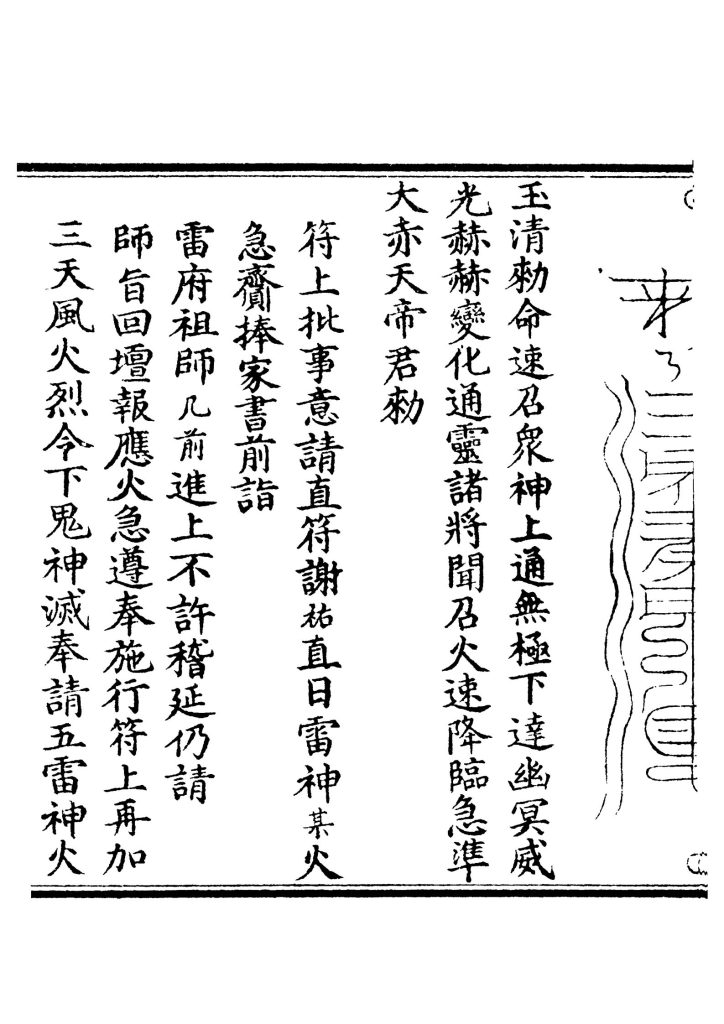 玉清勑命速召衆神上通無極下達幽冥威
光赫赫變化通靈諸將聞召火速降臨急準
大赤天帝君勑
符上批事意請直符謝祐直日雷神某火
急齎捧家書前詣
雷府祖師几前進上不許稽延仍請
師旨回壇報應火急遵奉施行符上再加
三天風火烈令下鬼神滅奉請五雷神火